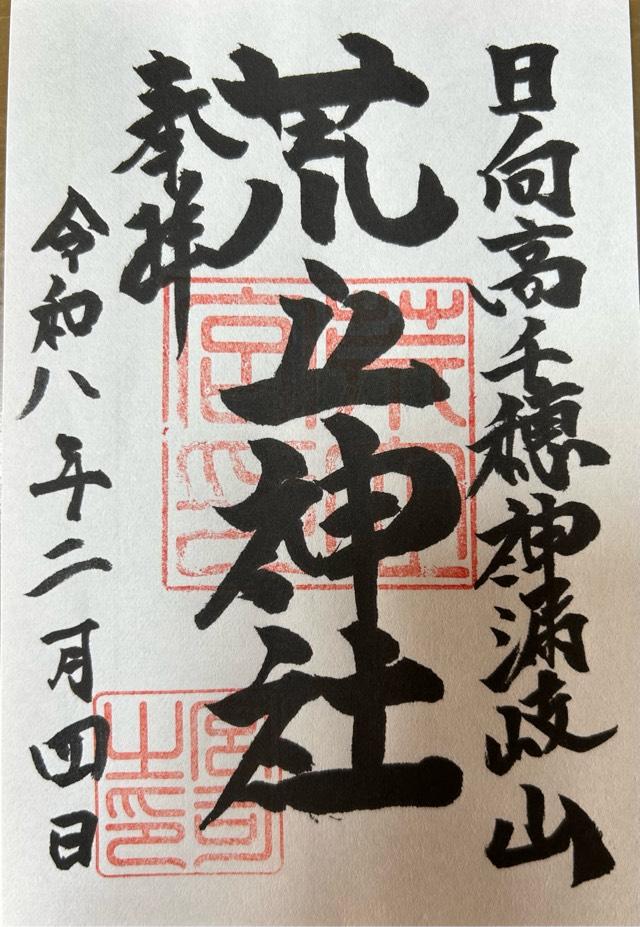 日向高千穂神漏岐山
荒立神社
奉拝
令和八年二月四日
宮司之印